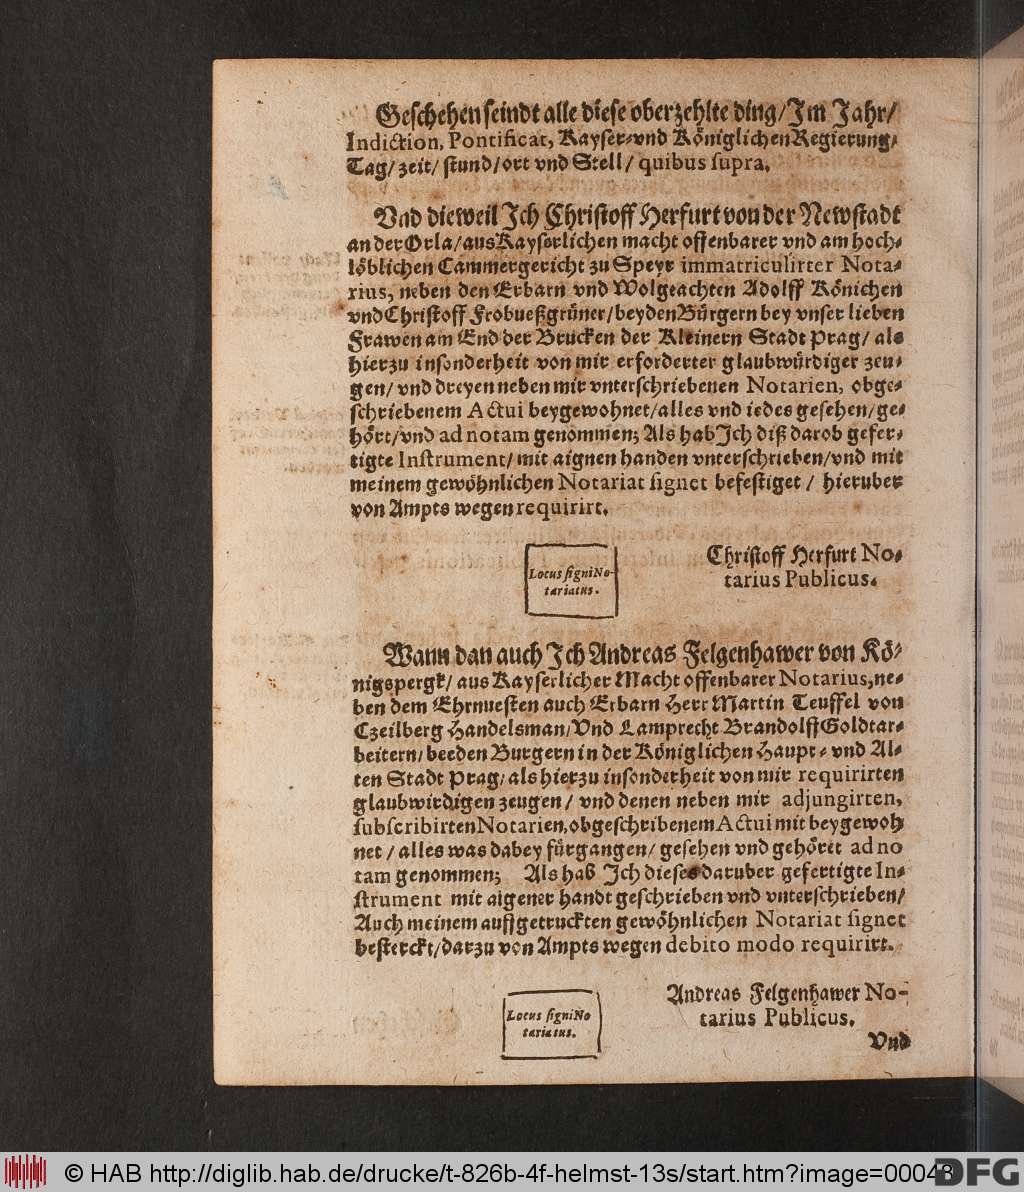 Geschehen seindt alle diese oberzehlte ding/ Im Jahr/
Indiction, Pontificat, Kayser- vnd Königlichen Regierung,
Tag/ zeit/ stund/ ort vnd Stell/ quibus supra.
Vnd dieweil Ich Christoff Herfurt von der Newstadt
an der Orla/ aus Kayserlichen macht offenbarer vnd am hoch-
löblichen Cammergericht zu Speyr immatriculirter Nota-
rius, neben den Erbarn vnd Wolgeachten Adolff Könichen
vnd Christoff Frobueßgrüner/ beyden Bürgern bey vnser lieben
Frawen am End der Brucken der Kleinern Stadt Prag/ als
hierzu insonderheit von mir erforderter glaubwürdiger zeu-
gen/ vnd dreyen neben mir vnterschriebenen Notarien, obge-
schriebenem Actui beygewohnet/ alles vnd iedes gesehen/ ge-
hört/ vnd ad notam genommen; Als hab Ich diß darob gefer-
tigte Instrument/ mit aignen handen vnterschrieben/ vnd mit
meinem gewöhnlichen Notariat signet befestiget/ hieruber
von Ampts wegen requirirt.
Christoff Herfurt No-
tarius Publicus.
Locus signi No-
tariatus.
Wann dan auch Ich Andreas Felgenhawer von Kö-
nigspergk/ aus Kayserlicher Macht offenbarer Notarius, ne-
ben dem Ehrnuesten auch Erbarn Herr Martin Teuffel von
Czeilberg Handelsman/ Vnd Lamprecht Brandolff Goldtar-
beitern/ beeden Burgern in der Königlichen Haupt- vnd Al-
ten Stadt Prag/ als hierzu insonderheit von mir requirirten
glaubwirdigen zeugen/ vnd denen neben mir adjungirten,
subscribirten Notarien, obgeschribenem Actui mit beygewoh
net/ alles was dabey fürgangen/ gesehen vnd gehöret ad no
tam genommen; Als hab Ich dieses daruber gefertigte In-
strument mit aigener handt geschrieben vnd vnterschrieben/
Auch meinem auffgetruckten gewöhnlichen Notariat signet
besterckt/ darzu von Ampts wegen debito modo requirirt.
Andreas Felgenhawer No-
tarius Publicus.
Locus signi No
tariatus.
Vnd
© HAB http://diglib.hab.de/drucke/t-826b-4f-helmst-13s/start.htm?image=00048
DFG